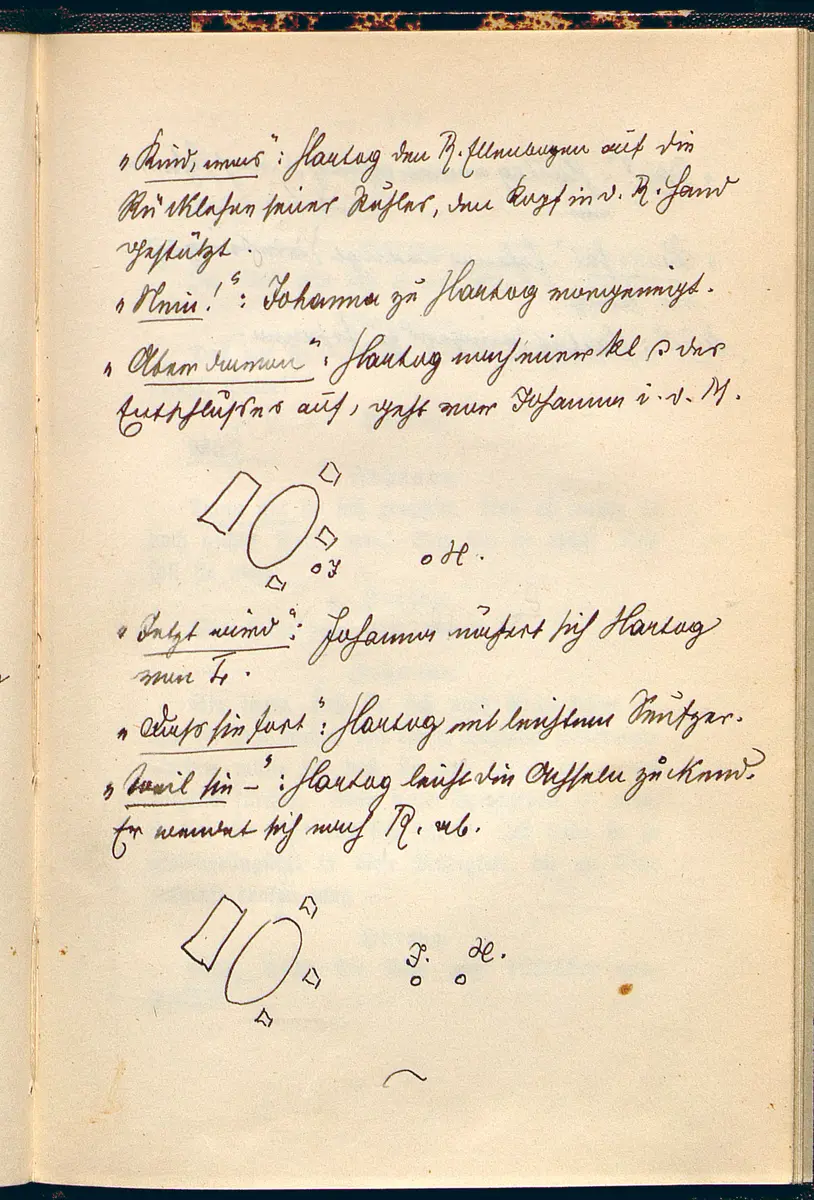 „Kind, was“: Hartog den R. Ellenbogen auf die
Rücklehne seines Stuhles, den Kopf in d. R. Hand
gestützt.
„Nein!“: Johanna zu Hartog vorgeneigt.
„Aber darum“: Hartog nach einer kl. des
Entschlusses auf, geht vor Johanna i. d. M.
J
H.
„Jetzt wird“: Johanna nähert sich Hartog
von
„Dass sie fort“: Hartog mit leichtem Seufzer.
„Weil sie –“: Hartog leicht die Achseln zuckend.
Er wendet sich nach R. ab.
J. H.